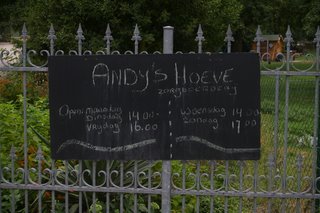 ANDY'S HOEVE
ZORGBOERDERIJ
Open: Maandag
Dinsdag 14.00-
Vrijdag 16.00
Woensdag 14.00
Zondag 17.00